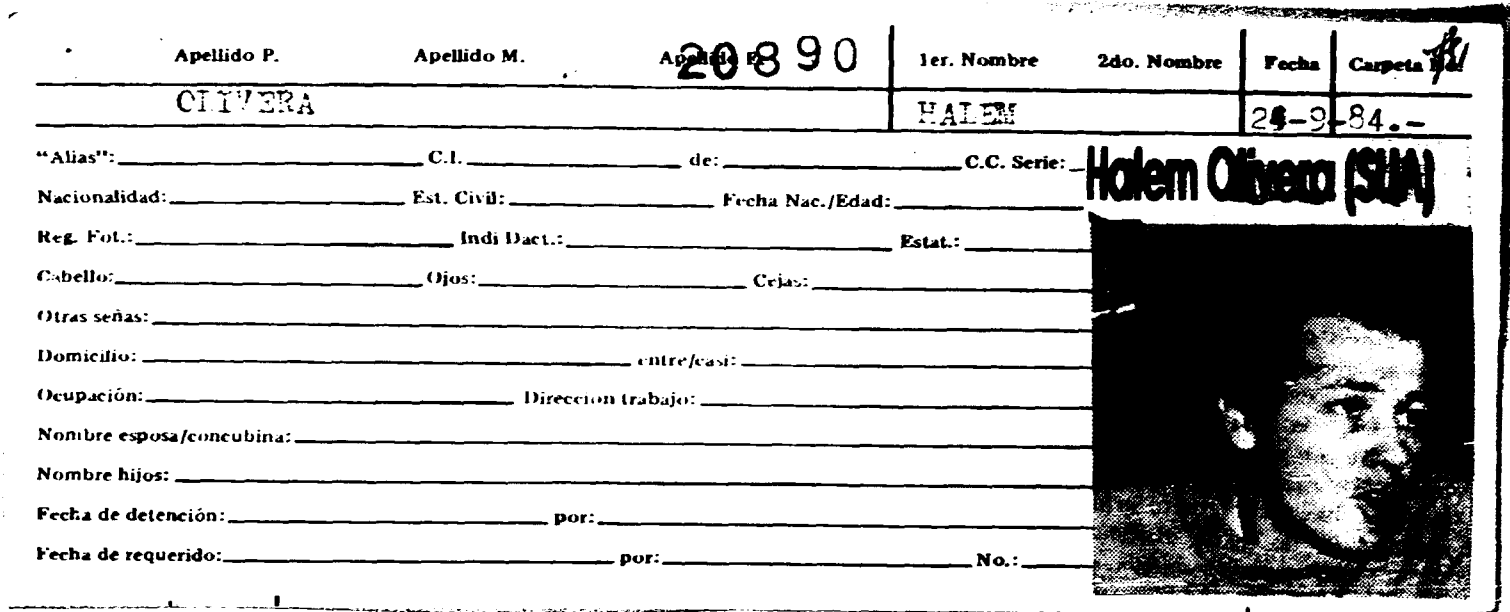 Apellido P. Apellido M. 20890 1er. Nombre 2do. Nombre Fecha Carpeta
OLIVERA HALEM -9-84.-
"Alias": C.I. de: C.C. Serie:
Halem Olivera (SUA)
Nacionalidad: Est. Civil: Fecha Nac./Edad:
Reg. Fot.: Indi Dact.: Estat.:
Cabello: Ojos: Cejas:
Otras señas:
Domicilio: entre/casi:
Ocupación: Direccion trabajo:
Nombre esposa/concubina:
Nombre hijos:
Fecha de detención: por:
Fecha de requerido: por: No.: